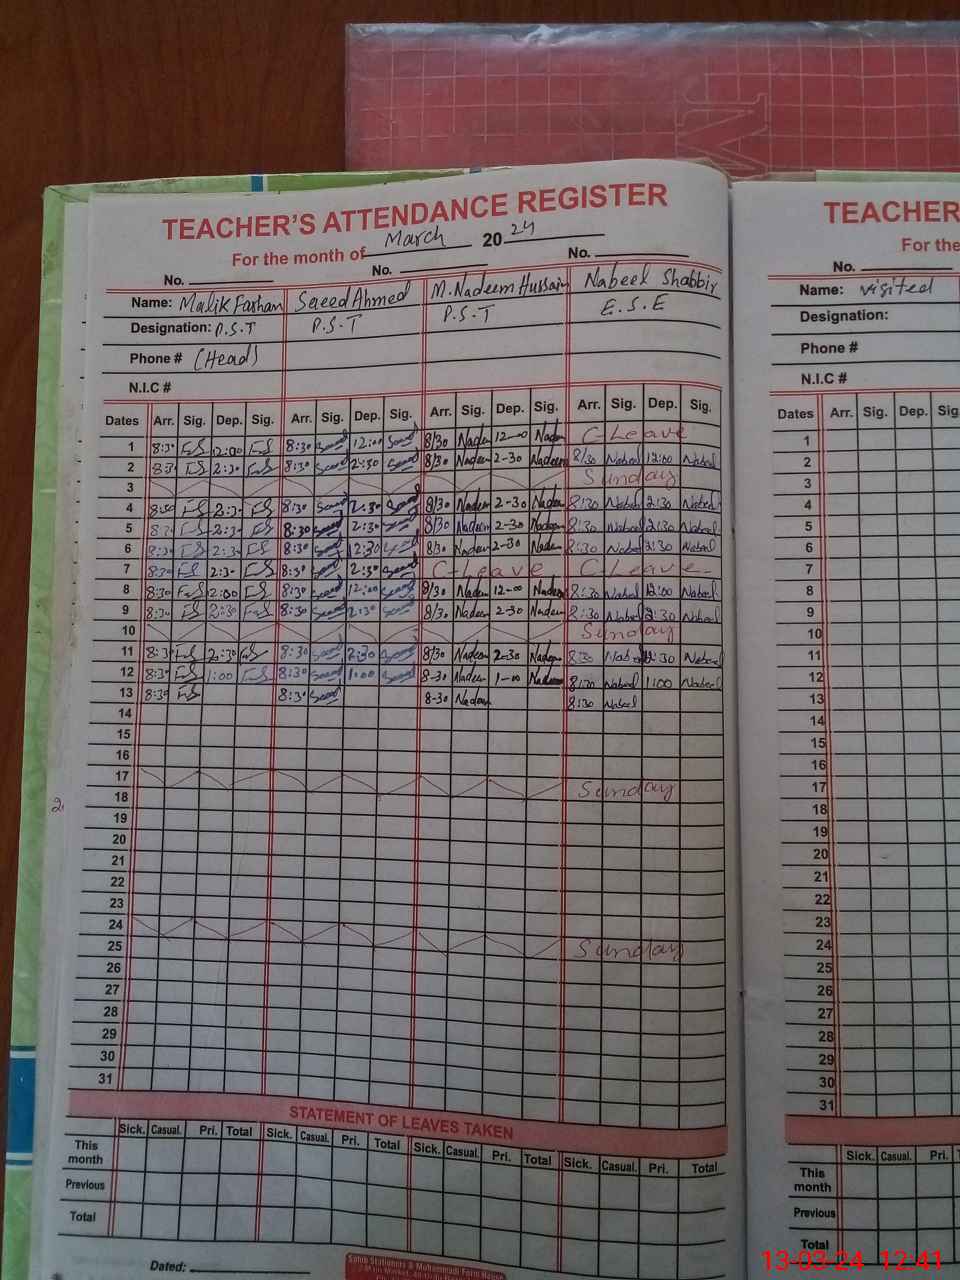 TEACHER'S ATTENDANCE REGISTER
For the month of March 2024
No. No. No.
Name: Malik Farhan Saeed Ahmed M. Nadeem Hussain Nabeel Shabbir
Designation: P.S.T P.S.T P.S.T E.S.E
Phone # (Head)
N.I.C #
Dates Arr. Sig. Dep. Sig. Arr. Sig. Dep. Sig. Arr. Sig. Dep. Sig. Arr. Sig. Dep. Sig.
1 8:30 FS 12:00 FS 8:30 Saeed 12:00 Saeed 8/30 Nadeem 12-00 Nadeem C-Leave
2 8:30 FS 2:30 FS 8:30 Saeed 2:30 Saeed 8/30 Nadeem 2-30 Nadeem 8/30 Nabeel 12:00 Nabeel
3 Sunday
4 8:30 FS 2:30 FS 8:30 Saeed 2:30 Saeed 8/30 Nadeem 2-30 Nadeem 8:30 Nabeel 2:30 Nabeel
5 8:30 FS 2:30 FS 8:30 Saeed 2:30 Saeed 8/30 Nadeem 2-30 Nadeem 8:30 Nabeel 2:30 Nabeel
6 8:30 FS 2:30 FS 8:30 Saeed 2:30 Saeed 8/30 Nadeem 2-30 Nadeem 8:30 Nabeel 2:30 Nabeel
7 8:30 FS 2:30 FS 8:30 Saeed 2:30 Saeed C-Leave C-Leave
8 8:30 FS 12:00 FS 8:30 Saeed 12:00 Saeed 8/30 Nadeem 12-00 Nadeem 8:30 Nabeel 12:00 Nabeel
9 8:30 FS 2:30 FS 8:30 Saeed 2:30 Saeed 8/30 Nadeem 2-30 Nadeem 8:30 Nabeel 2:30 Nabeel
10 Sunday
11 8:30 FS 2:30 FS 8:30 Saeed 2:30 Saeed 8/30 Nadeem 2-30 Nadeem 8:30 Nabeel 2:30 Nabeel
12 8:30 FS 1:00 FS 8:30 Saeed 1:00 Saeed 8-30 Nadeem 1-00 Nadeem 8:30 Nabeel 1:00 Nabeel
13 8:30 FS 8:30 Saeed 8-30 Nadeem 8:30 Nabeel
14
15
16
17 Sunday
18
19
20
21
22
23
24 Sunday
25
26
27
28
29
30
31
STATEMENT OF LEAVES TAKEN
Sick. Casual. Pri. Total Sick. Casual. Pri. Total Sick. Casual. Pri. Total Sick. Casual. Pri. Total
This month
Previous
Total
Dated:
Sahib Stationers & Muhammadi Form House
TEACHER
For the
No.
Name: visited
Designation:
Phone #
N.I.C #
Dates Arr. Sig. Dep. Sig.
1
2
3
4
5
6
7
8
9
10
11
12
13
14
15
16
17
18
19
20
21
22
23
24
25
26
27
28
29
30
31
Sick. Casual. Pri.
This month
Previous
Total
13-03-24 12:41